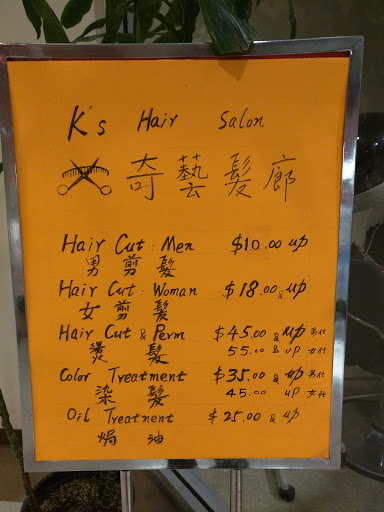 K's Hair Salon
奇藝髮廊
Hair Cut: Men $10.00 up
男剪髮
Hair Cut: Woman $18.00 & up
女剪髮
Hair Cut & Perm $45.00 & up 男仕
燙髮 55.00 & up 女仕
Color Treatment $35.00 & up 男仕
染髮 45.00 up 女仕
Oil Treatnent $25.00 & up
焗油